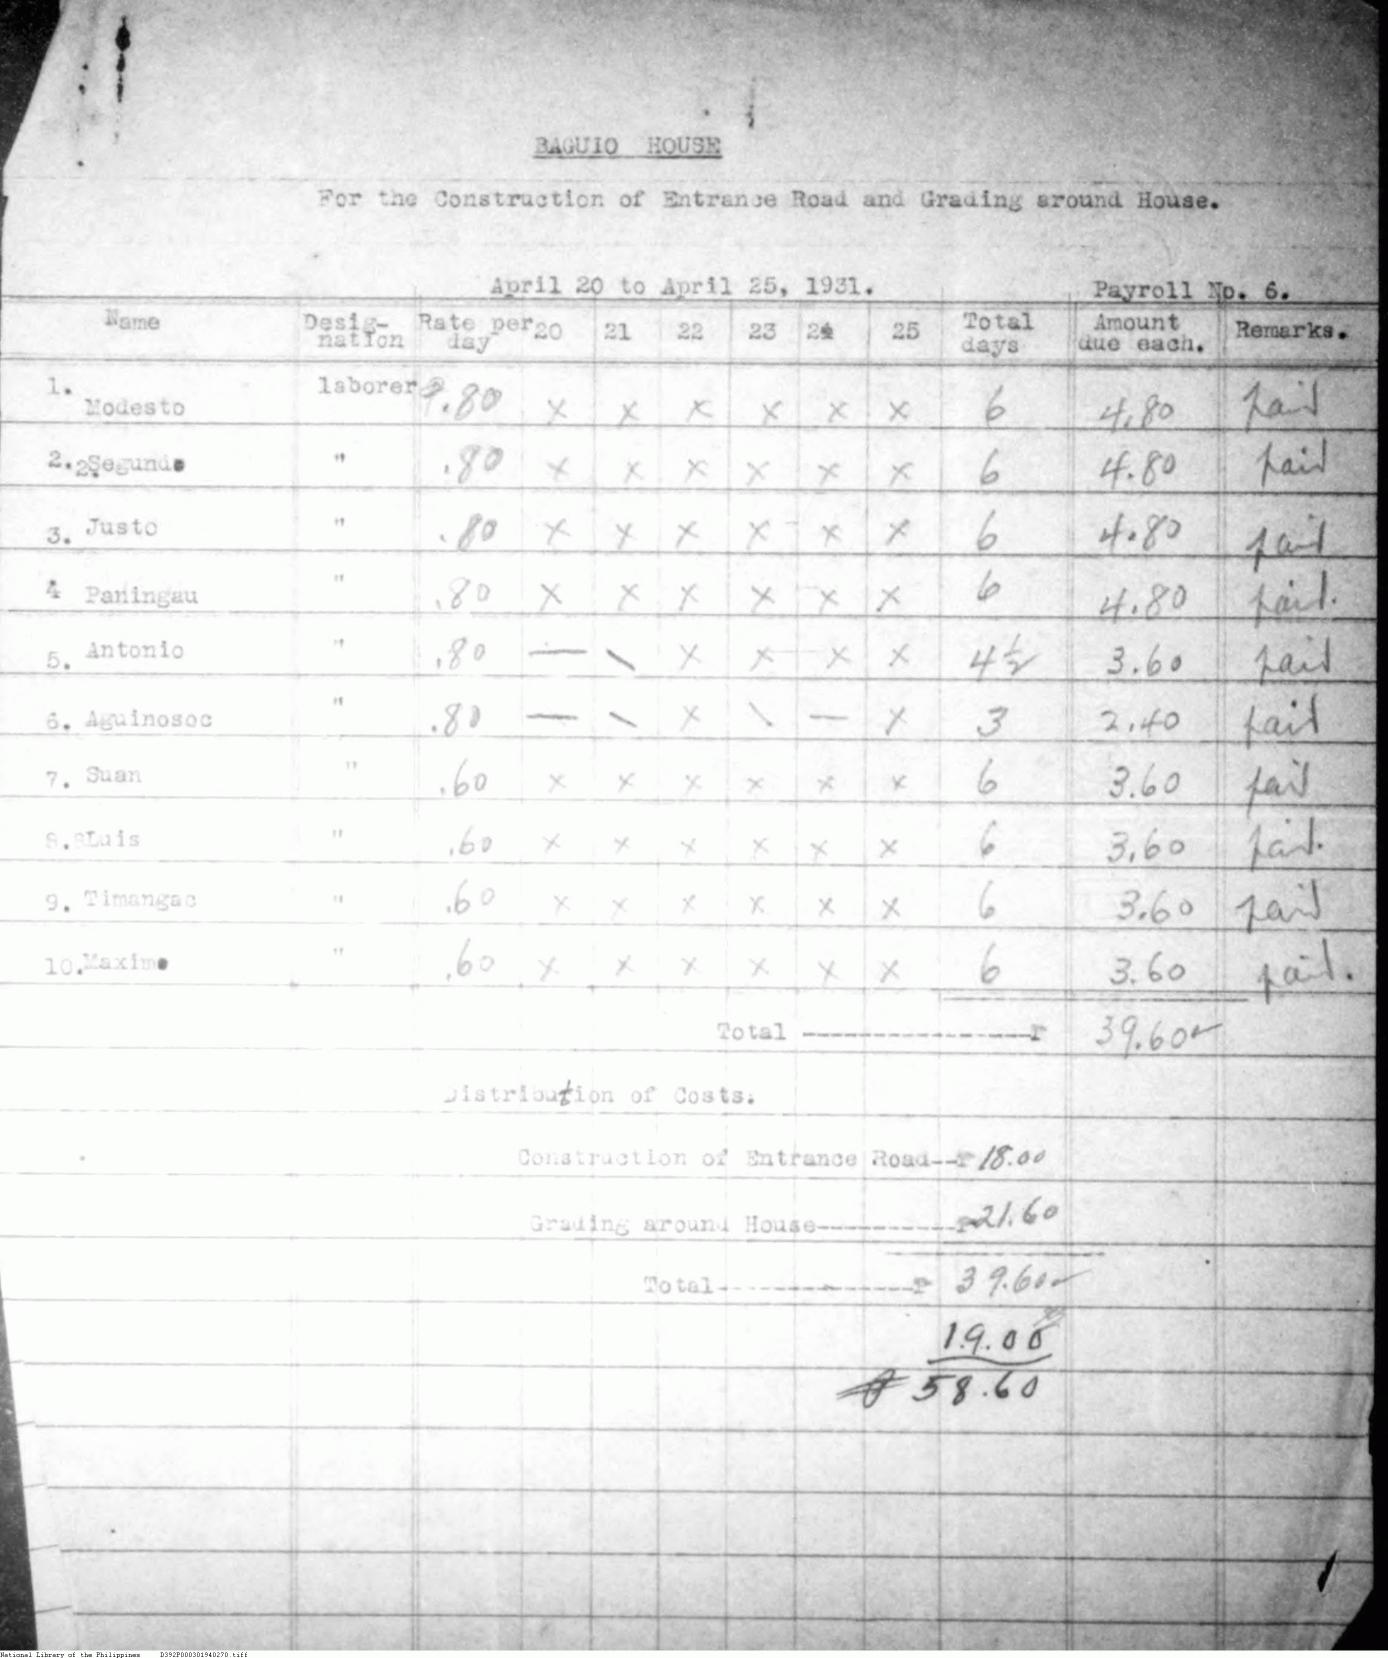 BAGUIO HOUSE
For the Construction of Entrance Road and Grading around House.
April 20 to April 25, 1931. Payroll No. 6.
Name Desig-nation Rate per day 20 21 22 23 24 25 Total days Amount due each. Remarks.
1. Modesto laborer ₱.80 x x x x x x 6 4.80 paid
2. Segundo " .80 x x x x x x 6 4.80 paid
3. Justo " .80 x x x x x x 6 4.80 paid
4 Paningau " .80 x x x x x x 6 4.80 paid.
5. Antonio " .80 — \ x x x x 4 1/2 3.60 paid
6. Aguinosoc " .80 — \ x \ — x 3 2.40 paid
7. Suan " .60 x x x x x x 6 3.60 paid
8. Luis " .60 x x x x x x 6 3.60 paid.
9. Timangac " .60 x x x x x x 6 3.60 paid
10. Maximo " .60 x x x x x x 6 3.60 paid.
Total ----------------₱ 39.60
Distribution of Costs.
Construction of Entrance Road--₱ 18.00
Grading around House----------₱ 21.60
Total--------------₱ 39.60
19.00
₱ 58.60
National Library of the Philippines D392P000301940270.tiff